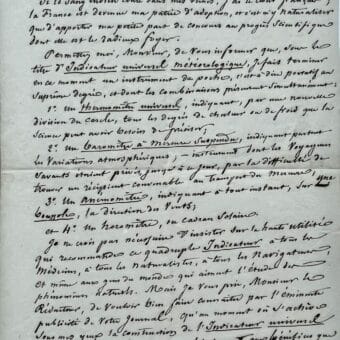 la France est devenue ma patrie d'adoption, et c'est si naturel
que d'apporter ma petite part de concours au progrès Scientifique
dont elle est le radieux foyer.
Permettez moi, Monsieur, de Vous informer que, sous le
titre d'Indicateur universel météorologique, je fais terminer
en ce moment un instrument de poche, c'est à dire portatif au
suprême degré, et dont les combinaisons présentent simultanément:
1º. Un thermomètre universel, indiquant, par une nouvelle
division du cercle, tous les degrés de chaleur ou de froid que la
Science peut avoir besoin de préciser;
2º. Un baromètre à Mercure Suspendu, indiquant partout
les Variations atmosphériques; — instrument dont les Voyageurs
Savants étaient privés jusqu'à ce jour, par la difficulté de
trouver un récipient convenable au transport du Mercure;
3º. Un Anémomètre, indiquant à tout instant, sur une
boussole, la direction du Vent;
et 4º. Un horomètre, ou cadran Solaire.
Je ne crois pas nécessaire d'insister sur la haute utilité
qui recommande ce quadruple Indicateur à tous les
Médecins, à tous les Naturalistes, à tous les Navigateurs,
et même aux gens du monde qui aiment l'étude des
phénomènes naturels. Mais je Vous prie, Monsieur le
Rédacteur, de Vouloir bien faire connaître par l'éminente
publicité de Votre Journal, qu'au moment où s'achève
Sous mes yeux la construction de l'Indicateur universel